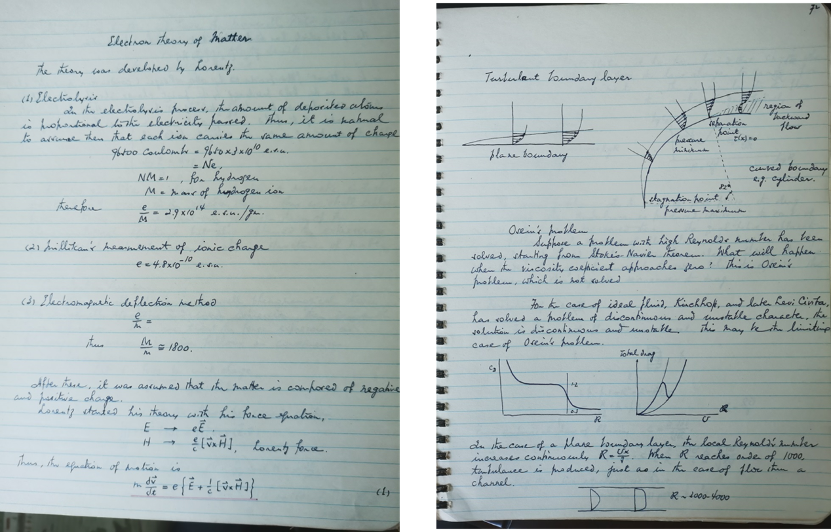 Electron theory of Matter
The theory was developed by Lorentz.
(1) Electrolysis
In the electrolysis process, the amount of deposited atoms
is proportional to the electricity passed. Thus, it is natural
to assume then that each ion carries the same amount of charge
96500 Coulombs = 9650 x 3 x 10^10 e.s.u.
= Ne,
NM = 1, for hydrogen
M = mass of hydrogen ion
therefore e/M = 2.9 x 10^14 e.s.u./gr.
(2) Millikan's measurement of ionic charge
e = 4.8 x 10^-10 e.s.u.
(3) Electromagnetic deflection method
e/m =
thus M/m ≅ 1800.
After these, it was assumed that the matter is composed of negative
and positive charge.
Lorentz started his theory with his force equation,
E → eE⃗.
H → e/c [v⃗ x H⃗], Lorentz force.
Thus, the equation of motion is
m dv⃗/dt = e { E⃗ + 1/c [v⃗ x H⃗] }
(1)
Turbulent boundary layer
plane boundary
separation point
region of backward flow
pressure minimum
curved boundary
e.g. cylinder.
stagnation point
pressure maximum
Oseen's problem
Suppose a problem with high Reynolds number has been
solved, starting from Stokes Navier theorem. What will happen
when the viscosity coeficient approaches zero? This is Oseen's
problem, which is not solved
For the case of ideal fluid, Kirchhop, and late Levi Civita,
has solved a problem of discontinuous and unstable character. The
solution is discontinuous and unstable. This may be the limiting
case of Oseen's problem.
Total drag
R
U
In the case of a plane boundary layer, the local Reynold's number
increases continuously R = Ux/ν. When R reaches order of 1000,
turbulance is produced, just as in the case of flow thru a
channel.
R ~ 1000-4000